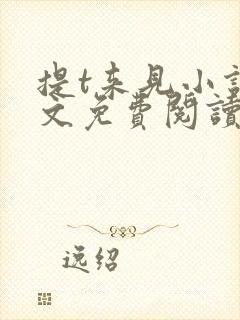 提t来见小說
文免費閱讀
逸绍